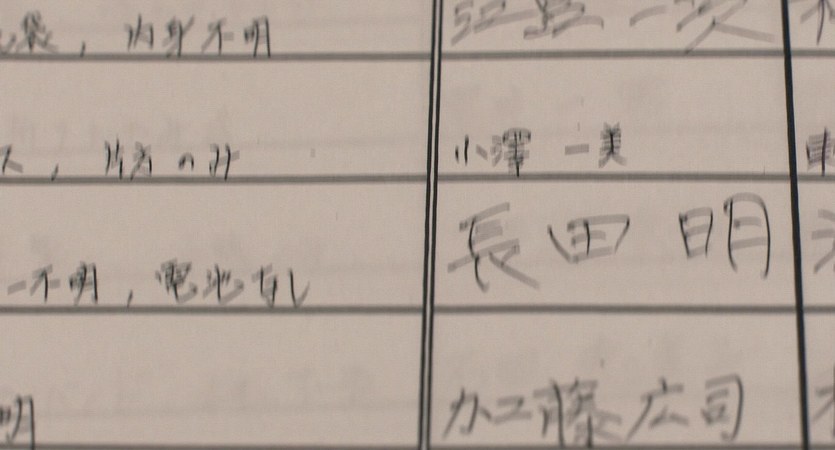 袋，内身不明
一次
ス，片方のみ
小澤 一美
不明，電池なし
長田 明
明
加藤 広司